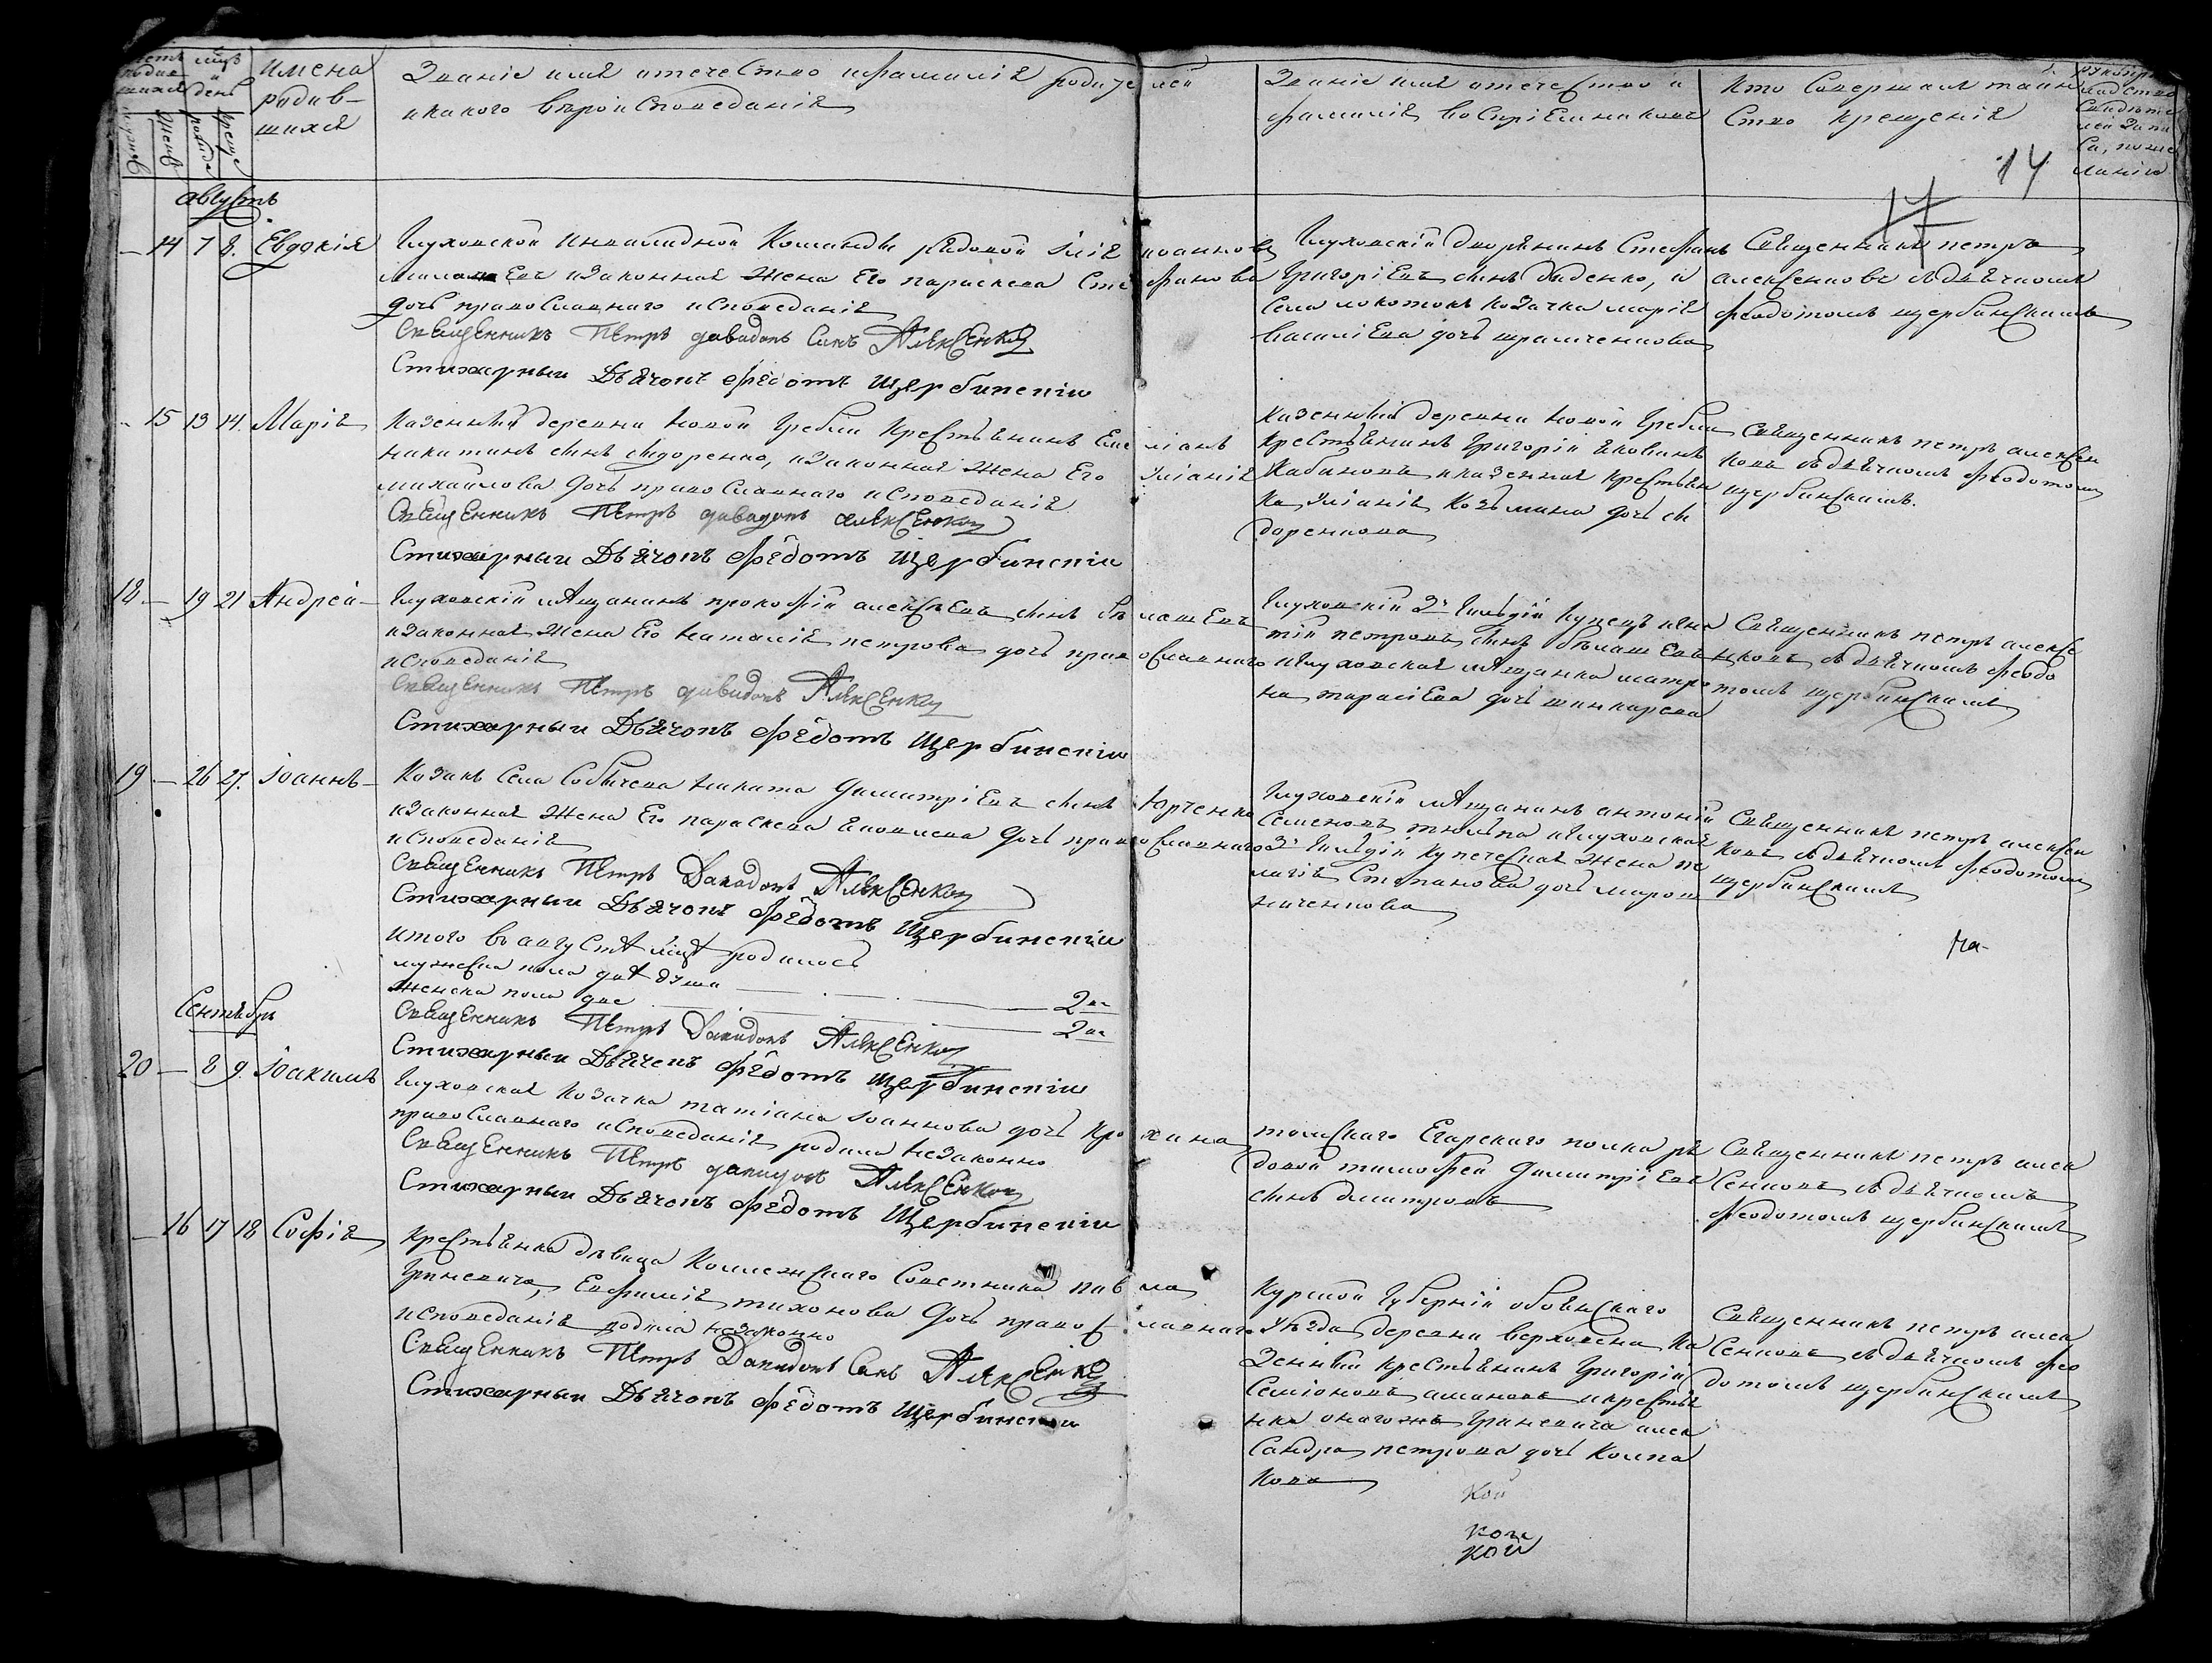 имена родив-
шихся
Званіе имя отечество ифамилія родителей
икакого вѣроисповеданія
Званіе имя отечество и
фамилія воспріемниковъ
Кто Совершалъ таин
Ство крещенія
14
17
августъ
14 7 8. Евдокія
Глуховской инвалидной Команды рядовой Илія иоанновъ
изаконная Жена Его параскева Стефанова
дочь православнаго исповеданія
Священникъ Петръ давидовъ Сынъ Алексенко
Стихарный Дьячокъ Федотъ Щербинскій
Глуховскій дворянинъ Стефанъ
Григоріевъ сынъ дыденко, и
Села локотокъ козачка марія
василіева дочь храмченкова
Священникъ петръ
алексенковъ съдьячкомъ
феодотомъ щербинскимъ
15 13 14. Марія
Казенный деревни Новой Гребли Крестьянинъ Емеліанъ
никитинъ сынъ сидоренко, изаконная Жена Его Уліанія
михайлова дочь православнаго исповеданія
Священникъ Петръ давидовъ алексенко
Стихарный Дьячокъ Федотъ Щербинскій
казенный деревни новой Гребли
крестьянинъ Григорій яковивъ
Кабановъ иказенная крестьян
ка Уліанія Козьмина дочь си
доренкова
Священникъ петръ алексен
ковъ съдьячкомъ феодотомъ
щербинскимъ.
18 — 19 21 Андрей
Глуховскій мѣщанинъ прокофій алексѣевъ сынъ бѣлашевъ
изаконная Жена Его наталія петрова дочь православнаго
исповеданія
Священникъ Петръ давидовъ Алексенко
Стихарный Дьячокъ Федотъ Щербинскій
Глуховскій 3й Гильдіи Купецъ игна
тій петровъ сынъ бѣлашевъ
иглуховская мѣщанка матро
на тарасіева дочь шинкарева
Священникъ петръ алексе
нковъ съдьячкомъ феодо
томъ щербинскимъ
19 — 26 27. Іоаннъ
Козакъ Села Собычева никита димитріевъ сынъ Юрченко
изаконная Жена Его параскева яковлева дочь православнаго
исповеданія
Священникъ Петръ Давидовъ Алексенко
Стихарный Дьячокъ Федотъ Щербинскій
Глуховскій мѣщанинъ антоній
Семеновъ тюльпа иглуховская
3й Гильдіи купеческая жена пе
лагія Степанова дочь мирош
ниченкова
Священникъ петръ алексен
ковъ съдьячкомъ феодотомъ
щербинскимъ
Итого въ августѣ мцѣ родилось
мужеска пола двѣ души — 2
женска пола двѣ — 2
Священникъ Петръ Давидовъ Алексенко
Стихарный Дьячокъ Федотъ Щербинскій
на
Сентябрь
20 — 8 9. Іоакимъ
Глуховская козачка татіана іоаннова дочь
православнаго исповеданія родила незаконно
Священникъ Петръ давидовъ Алексенко
Стихарный Дьячокъ Федотъ Щербинскій
томскаго Егарскаго полка ря
довой тимофей димитріевъ
сынъ дмитровъ
Священникъ петръ алек
сенковъ съдьячкомъ
феодотомъ щербинскимъ
16 17 18 Софія
Крестьянка дѣвица Коллежскаго Советника павла
Гриневича, Евфимія тихонова дочь православнаго
исповеданія родила незаконно
Священникъ Петръ Давидовъ Сынъ Алексенко
Стихарный Дьячокъ Федотъ Щербинскій
Курской Губерніи обоянскаго
уѣзда деревни верховена Ка
зенный крестьянинъ Григорій
Семіоновъ икрестья
нка онагожъ Гриневича алек
сандра петрова дочь Колпа
кова
Священникъ петръ алек
сенковъ съдьячкомъ фео
дотомъ щербинскимъ
Кой
кой
кой